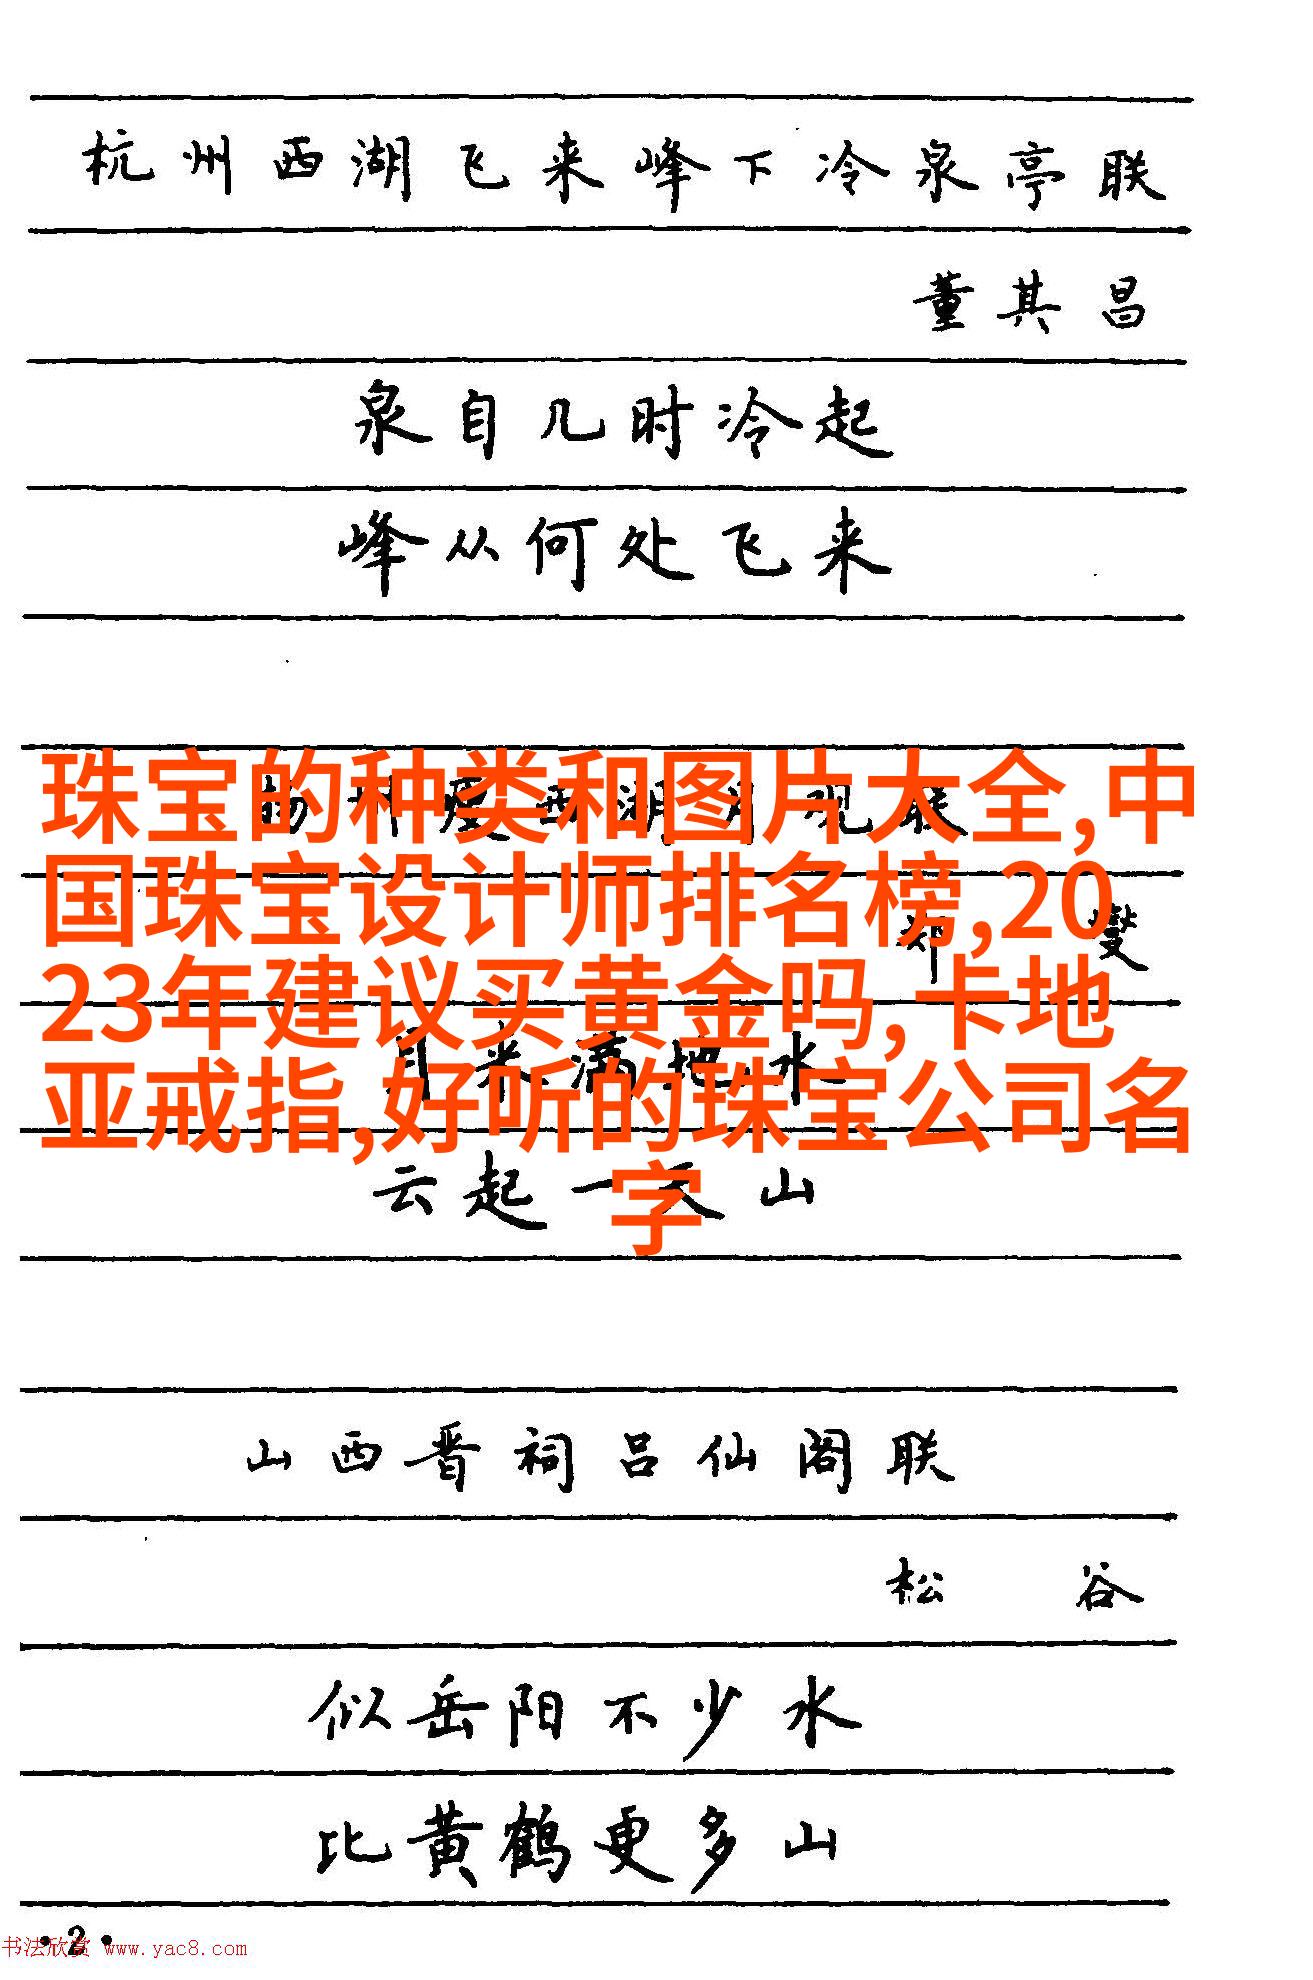 杭州西湖飞来峰下冷泉亭联
董其昌
泉自几时冷起
峰从何处飞来
珠宝的种类和图片大全,中
国珠宝设计师排名榜,20
23年建议买黄金吗,卡地
亚戒指,好听的珠宝公司名
字
扬州瘦西湖月观联
郑燮
月来满地水
云起一天山
山西晋祠吕仙阁联
松谷
似岳阳不少水
比黄鹤更多山
·2·
书法欣赏 www.yac8.com